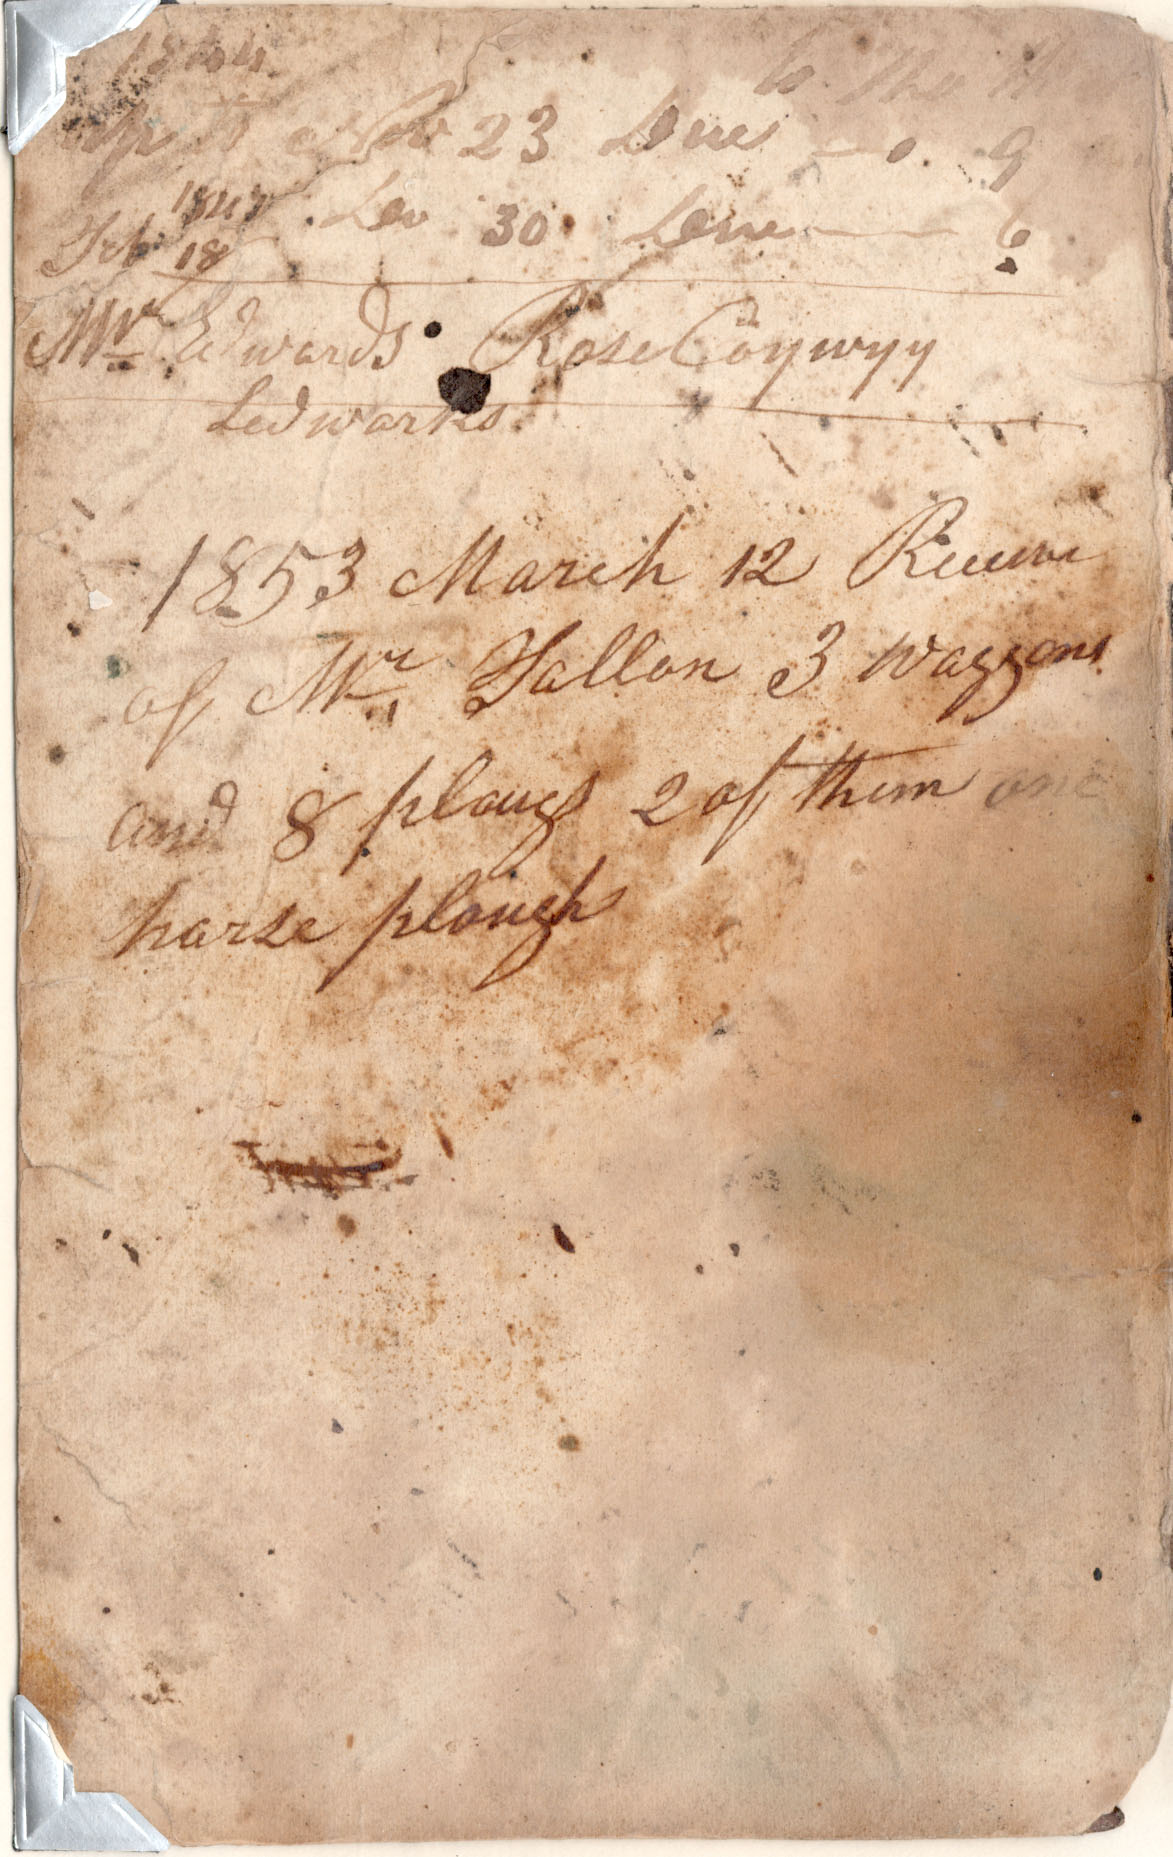 1844
to the
Nov 23 Due 9
1845
Feb 18 Lev 30 Due 6
Mr Edwards Rose Conwyy
Ledwarks
1853 March 12 Receive
of Mr Fallon 3 waggons
and 8 plougs 2 of them one
harse plough